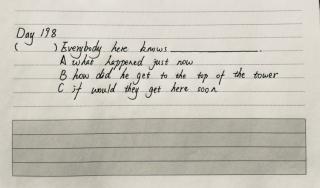 Day 198
(    ) Everybody here knows ____________.
A what happened just now
B how did he get to the top of the tower
C if would they get here soon